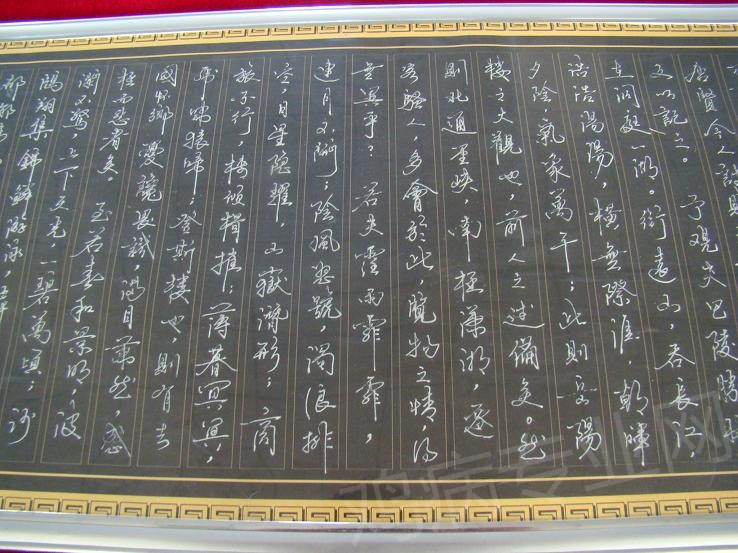 唐賢今人詩賦
文以記之。予觀夫巴陵勝狀
在洞庭一湖。銜遠山，吞長江，
浩浩湯湯，橫無際涯，朝暉
夕陰，氣象萬千；此則岳陽
樓之大觀也，前人之述備矣。然
則北通巫峽，南極瀟湘，遷
客騷人，多會於此，覽物之情，得
無異乎？若夫霪雨霏霏，
連月不開；陰風怒號，濁浪排
空，日星隱耀，山嶽潛形；商
旅不行，檣傾楫摧；薄暮冥冥，
虎嘯猿啼；登斯樓也，則有去
國懷鄉，憂讒畏譏，滿目蕭然，感
極而悲者矣。至若春和景明，波
瀾不驚，上下天光，一碧萬頃；沙
鷗翔集，錦鱗游泳，
郁郁青
鸡病专业网